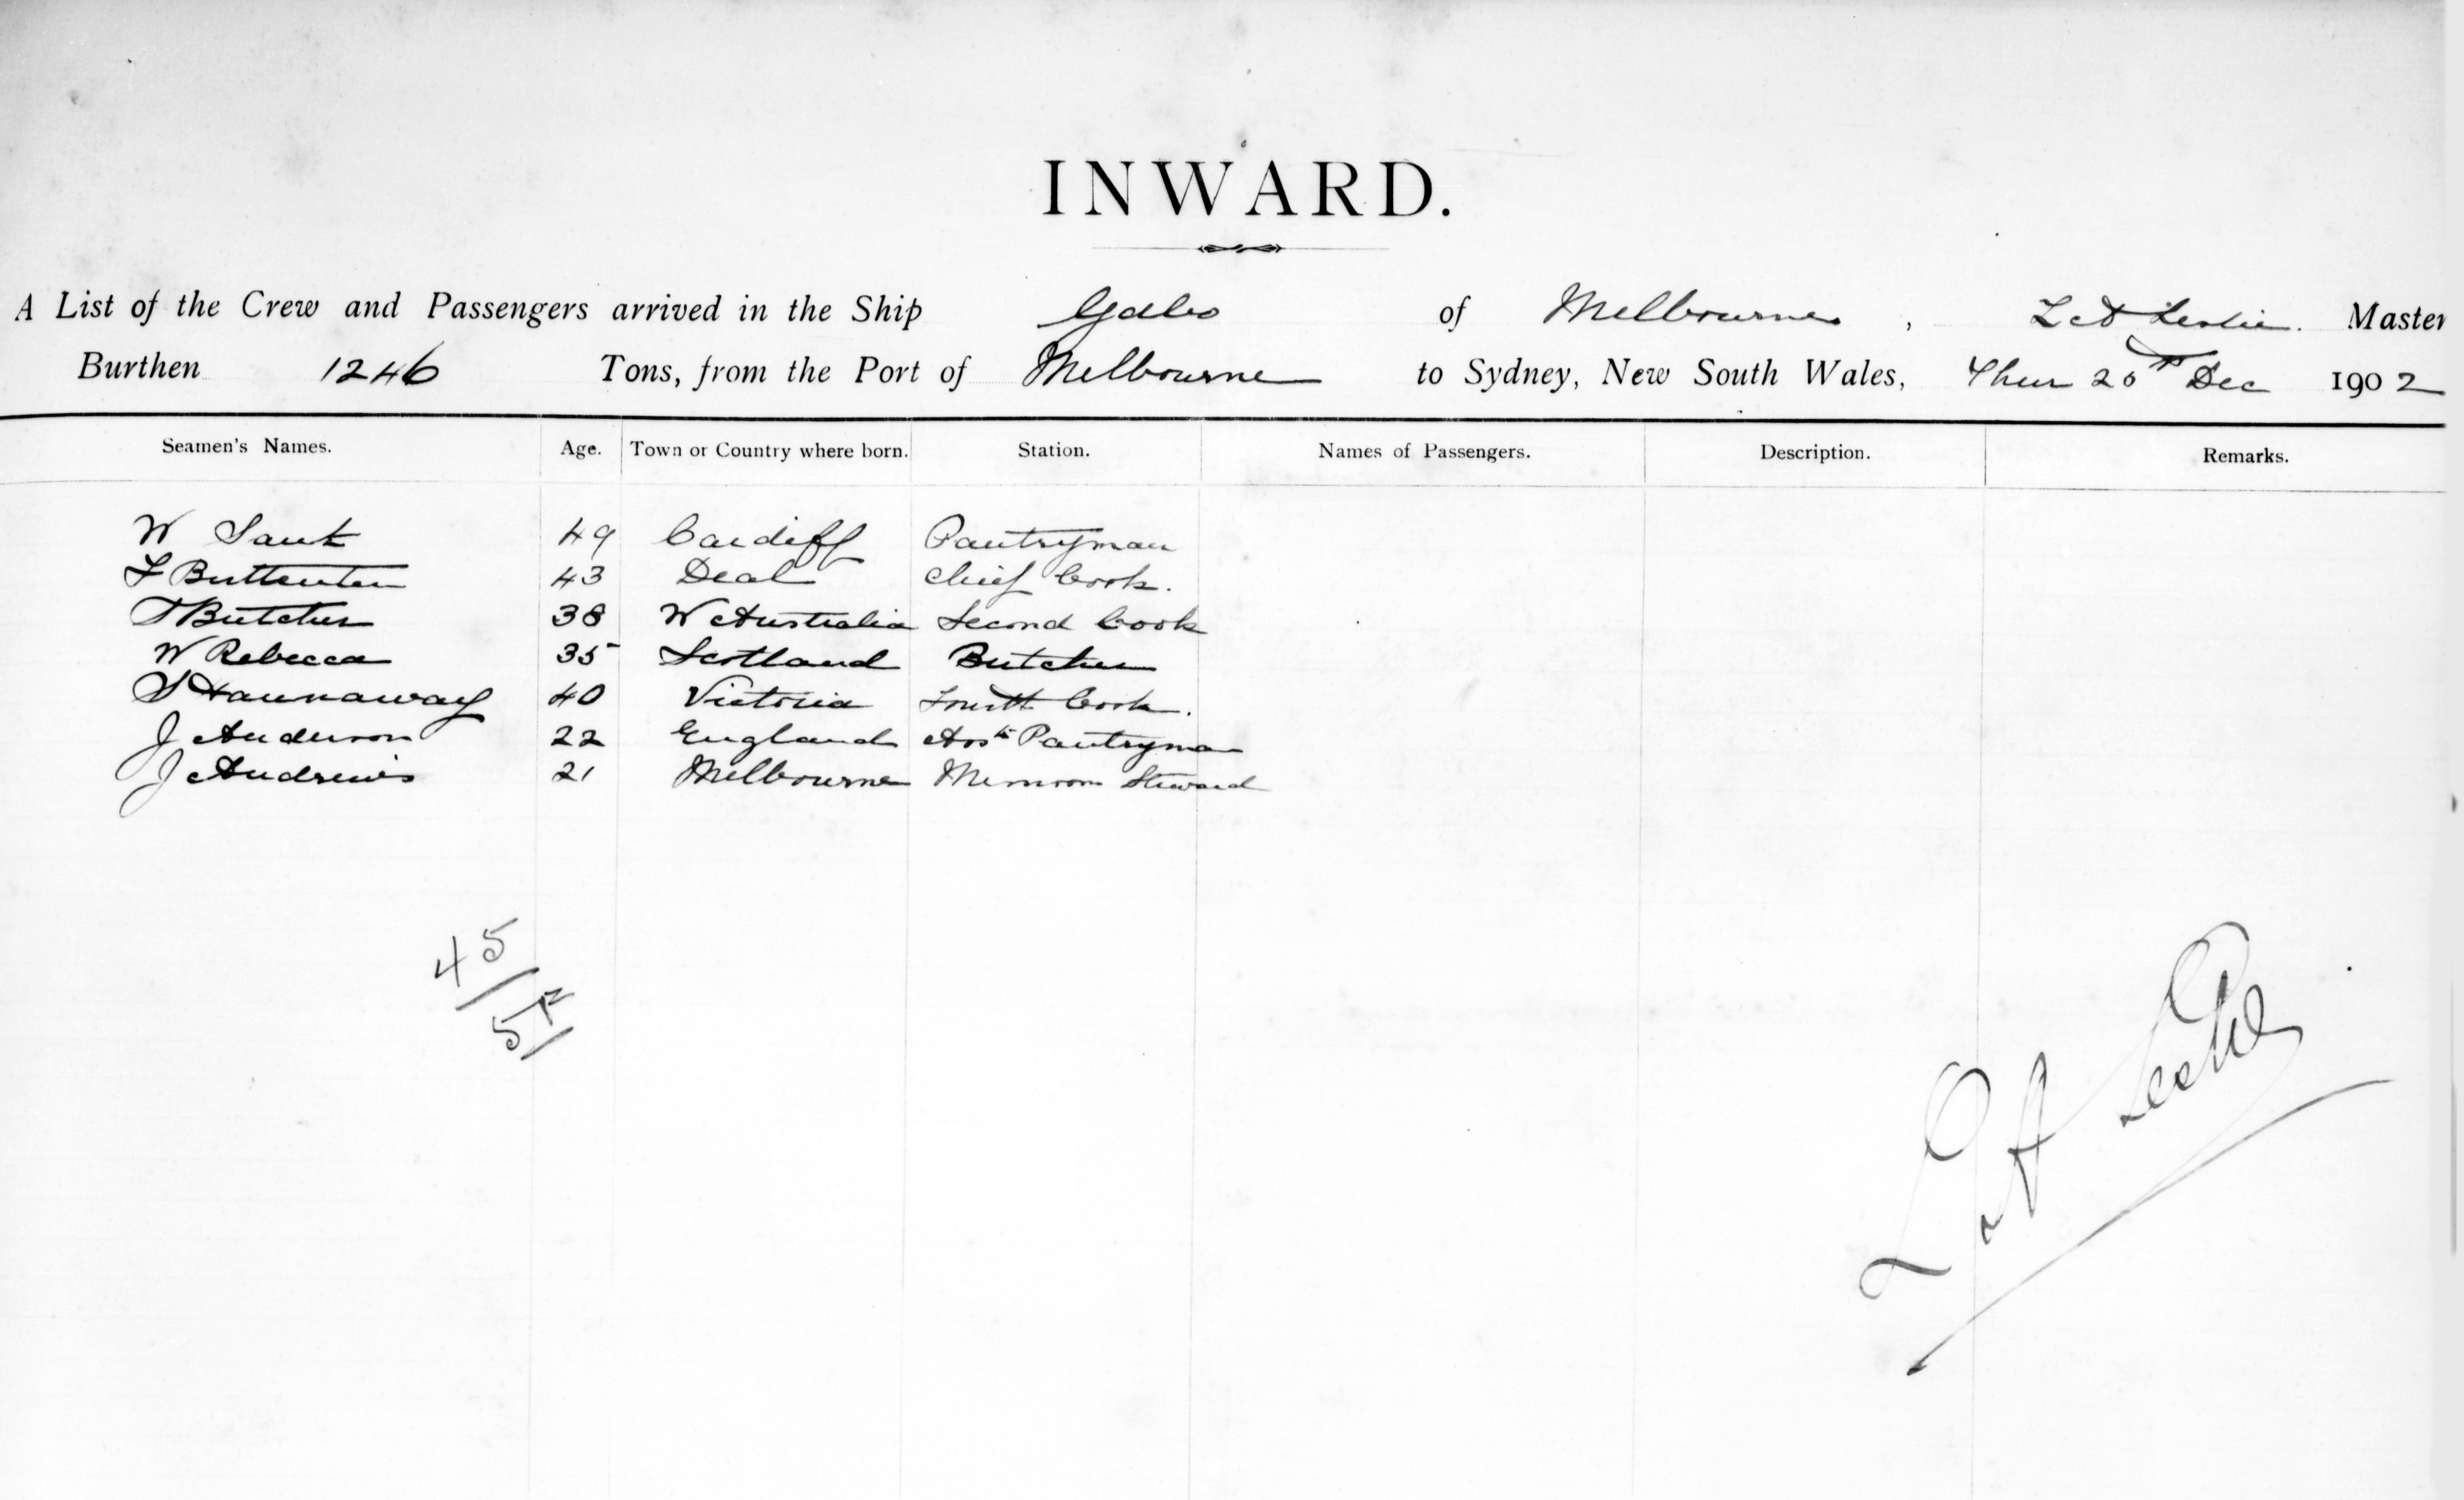 INWARD.
A List of the Crew and Passengers arrived in the Ship Gabo of Melbourne, L A Leslie. Master
Burthen 1246 Tons, from the Port of Melbourne to Sydney, New South Wales, Thur 20th Dec 1902
Seamen's Names. Age. Town or Country where born. Station. Names of Passengers. Description. Remarks.
W 49 Cardiff Pantryman
43 Deal Chief Cook.
T Butcher 38 W Australia Second Cook
W Rebecca 35 Scotland Butcher
Hannaway 40 Victoria Fourth Cook.
J Anderson 22 England Asst Pantryman
J Andrews 21 Melbourne Messroom Steward
45
52
L A Leslie